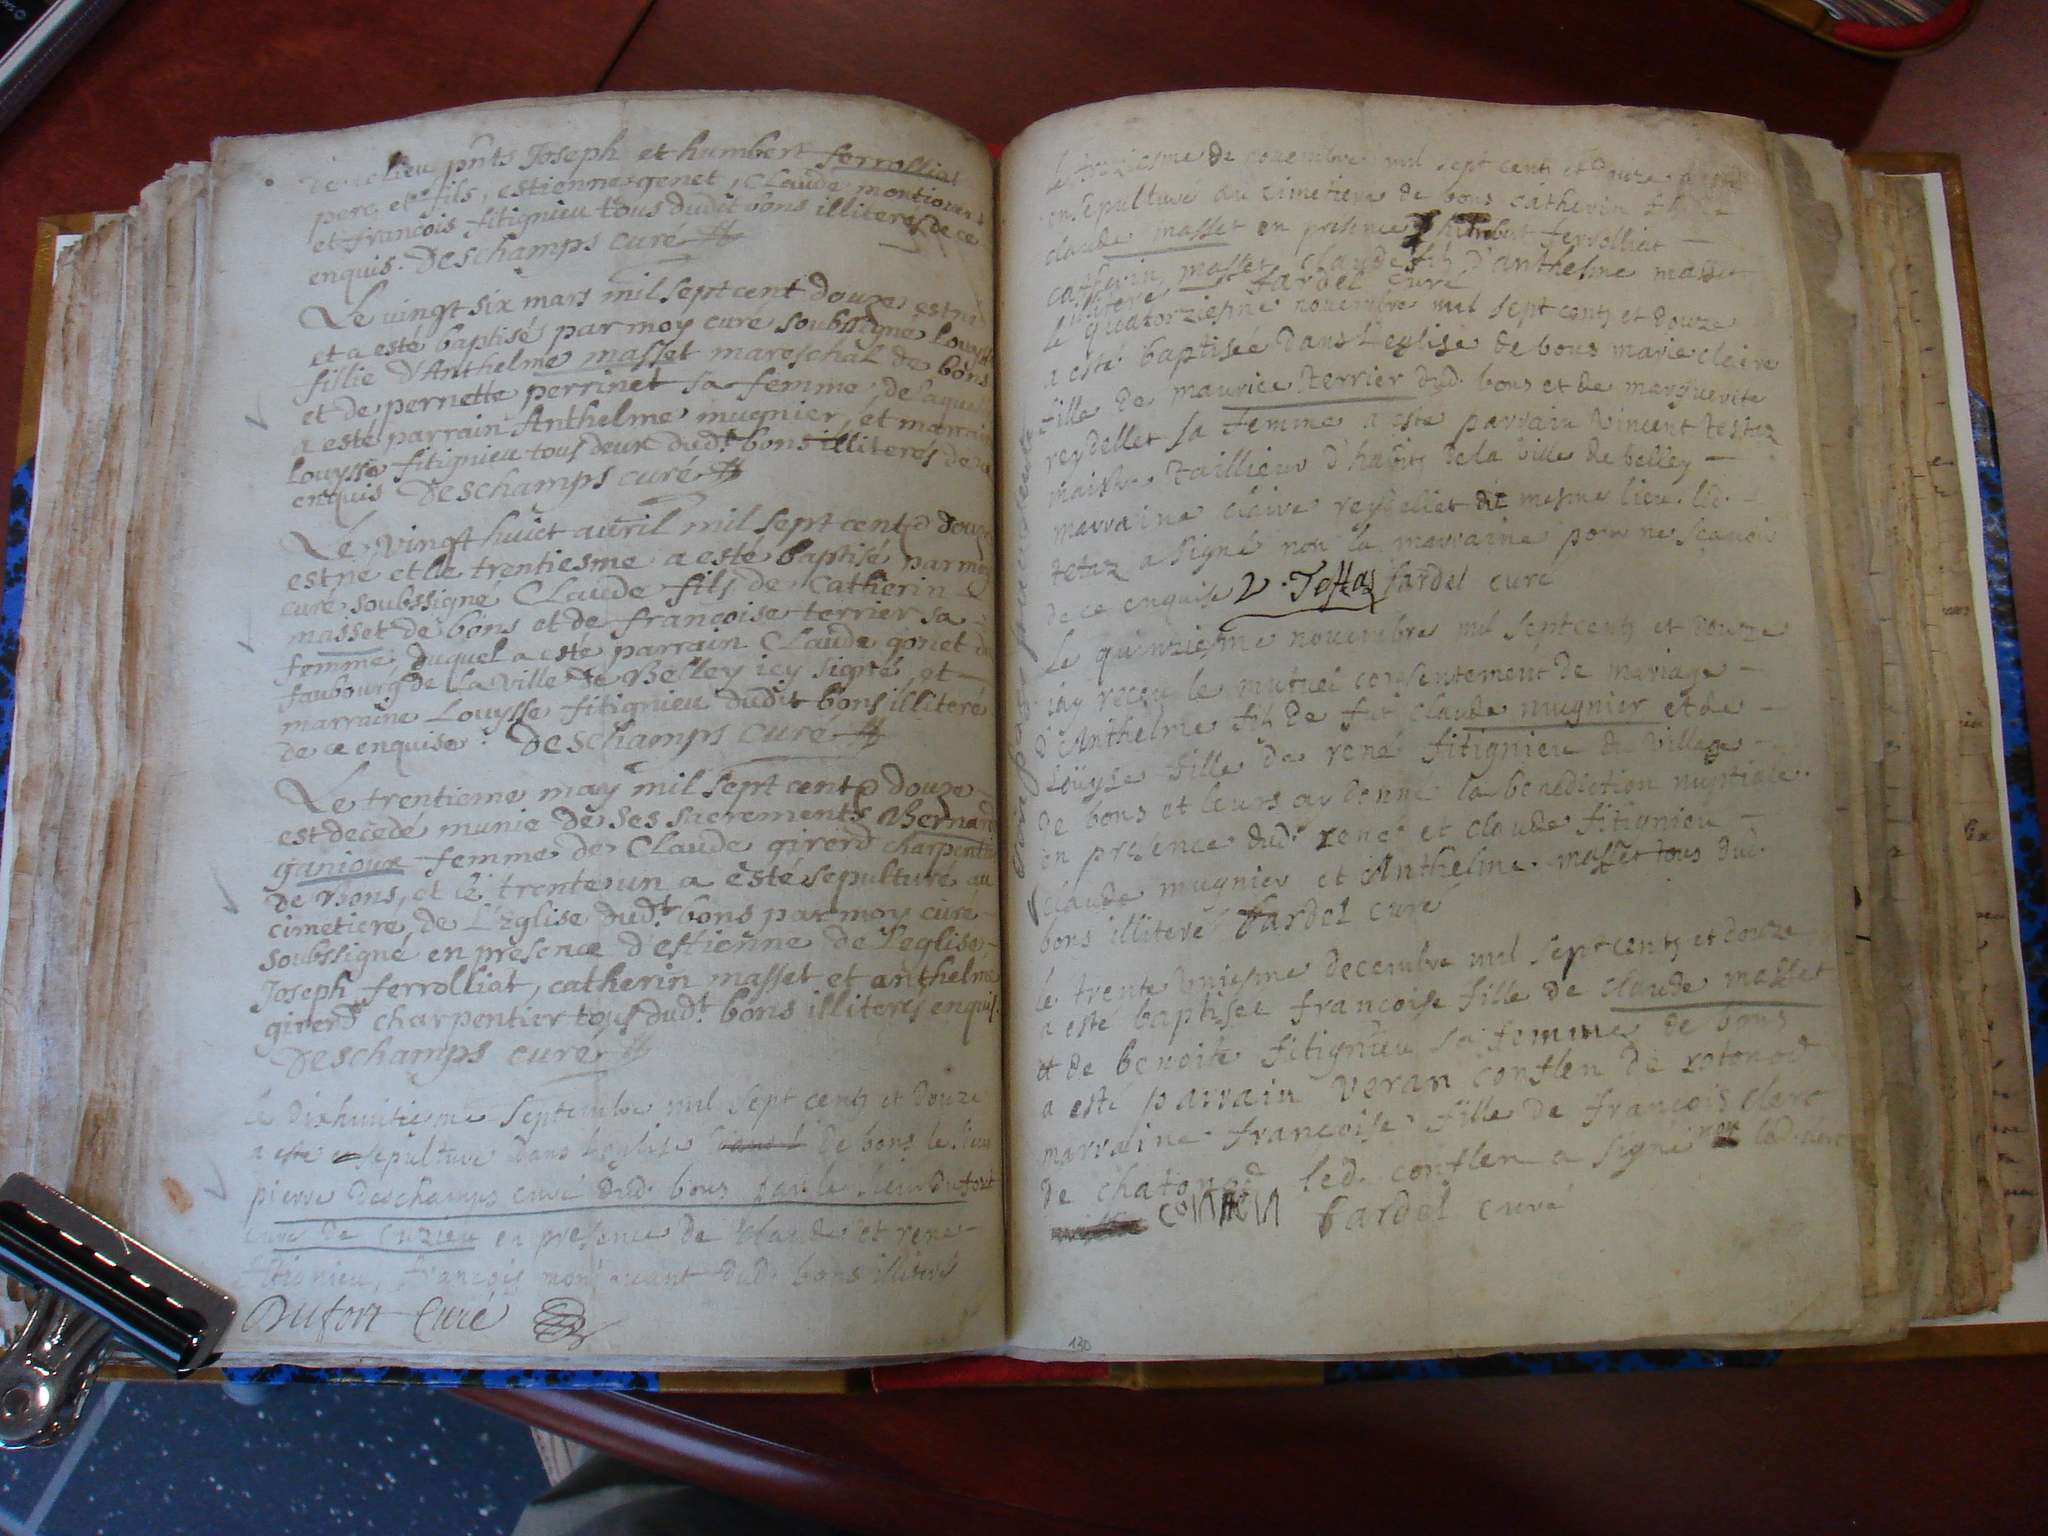 de ce lieu pnts Joseph et humbert ferrolliat
pere, et fils, estienne genet, Claude
et francois fitignieu tous dudit bons illiteres de ce
enquis. Deschamps curé
Le vingt six mars mil sept cent douze est né
et a esté baptisé par moy curé soubssigné Louysse
fillie d'Anthelme masset mareschal de bons
et de pernette perrinet sa femme, de laquelle
a esté parrain Anthelme mugnier, et marraine
Louysse fitignieu tous deux dudt bons illiterés de ce
enquis Deschamps curé
Le vingt huict avril mil sept cent douze
est né et le trentiesme a esté baptisé par moy
curé soubssigné Claude fils de Catherin
masset de bons et de francoise terrier sa
femme, duquel a esté parrain Claude gonet du
faubourg de La ville de Belley icy signé, et
marraine Louysse fitignieu dudit bons illiteré
de ce enquise. Deschamps curé
Le trentieme may mil sept cent douze
est decedé munie de ses sacrements Bernarde
ganioux femme de Claude girerd charpentier
de Bons, et le trente un a esté sepulturé au
cimetiere, de L'Eglise dudt bons par moy curé
soubssigné en presence d'estienne de l'eglise
Joseph ferrolliat, catherin masset et anthelme
girerd charpentier tous dudt bons illiteres enquis.
Deschamps curé
le dixhuitieme septembre mil sept cents et douze
a este sepulturé dans leglise de bons le sieur
pierre deschamps curé dud. bons par le sieur dufort
curé de Cuzieu en presence de Claude et rene
fitignieu, francois dud. bons illiterés
Dufort Curé
le treziesme de novembre mil sept cents et douze a esté
ensepulturé au cimetiere de bons catherin fils de
claude masset en presence d'humbert ferrolliat
catherin masset claude fils d'anthelme masset
illiteré fardel curé
le quatorziesme novembre mil sept cents et douze
a esté baptisée dans L'eglise de bons marie claire
fille de maurice terrier dud. bons et de marguerite
reydellet sa femme a este parrain vincent testaz
maistre taillieur d'habits de la ville de belley
marraine claire reydellet du mesme lieu. led.
tetaz a signé non la marraine pour ne sçavoir
de ce enquise V. Testaz fardel curé
Le quinziesme novembre mil sept cents et douze
iay receu le mutuel consentement de mariage
d'Anthelme fils de fut claude mugnier et de
Loüyse fille de rené fitignieu du village
de bons et leurs ay donné la benediction nuptiale
en presence dud. rené et claude fitignieu
claude mugnier et Anthelme masset tous dud.
bons illiteré fardel curé
le trente uniesme decembre mil sept cents et douze
a esté baptisée francoise fille de claude masset
et de benoite fitignieu sa femme de bons
a esté parrain veran conflen de rotonod
marraine francoise fille de francois clerc
de chatonod led. conflen a signé non lad. clerc
conflen fardel curé
130